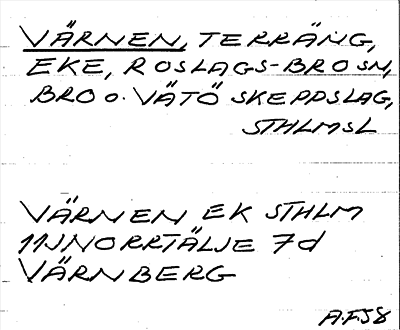 VÄRNEN, TERRÄNG,
EKE, ROSLAGS-BRO SN,
BRO O. VÄTÖ SKEPPSLAG,
STHLMSL
VÄRNEN EK STHLM
11J NORRTÄLJE 7d
VÄRNBERG
A.F.58